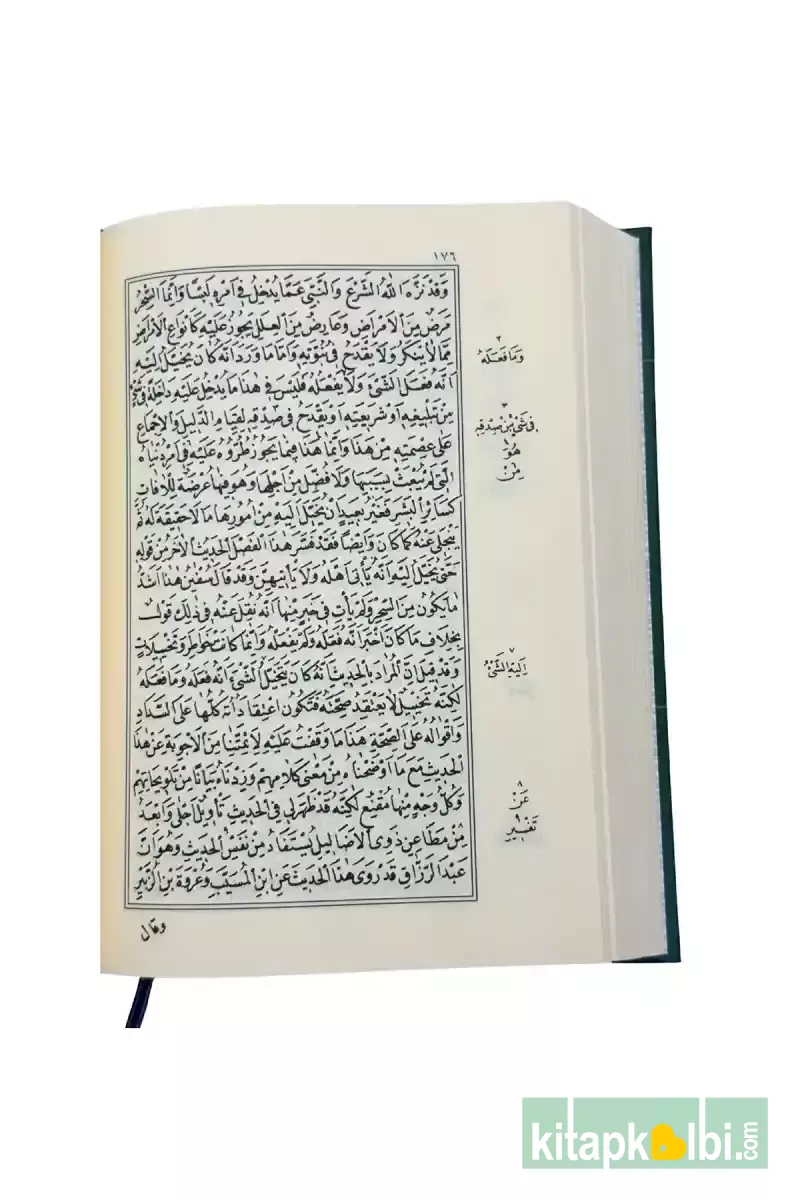 ١٧٦
وَقَدْ نَزَّهَ اللّٰهُ الشَّرْعَ وَالنَّبِيَّ عَمَّا يُدْخِلُ فِى اَمْرِهِ لَبْسًا وَاِنَّمَا السِّحْرُ
مَرَضٌ مِنَ الْاَمْرَاضِ وَعَارِضٌ مِنَ الْعِلَلِ يَجُوزُ عَلَيْهِ كَاَنْوَاعِ الْاَمْرَاضِ
مِمَّا لَا يُنْكَرُ وَلَا يَقْدَحُ فِى نُبُوَّتِهِ وَاَمَّا مَا وَرَدَ اَنَّهُ كَانَ يُخَيَّلُ اِلَيْهِ
اَنَّهُ فَعَلَ الشَّىْءَ وَلَا يَفْعَلُهُ فَلَيْسَ فِى هٰذَا مَا يُدْخِلُ عَلَيْهِ دَاخِلَةً فِى شَىْءٍ
مِنْ تَبْلِيغِهِ اَوْ شَرِيعَتِهِ اَوْ يَقْدَحُ فِى صِدْقِهِ لِقِيَامِ الدَّلِيلِ وَالْاِجْمَاعِ
عَلَى عِصْمَتِهِ مِنْ هٰذَا وَاِنَّمَا هٰذَا فِيمَا يَجُوزُ طُرُوُّهُ عَلَيْهِ فِى اَمْرِ دُنْيَاهُ
الَّتِى لَمْ يُبْعَثْ بِسَبَبِهَا وَلَا فُضِّلَ مِنْ اَجْلِهَا وَهُوَ فِيهَا عُرْضَةٌ لِلْاٰفَاتِ
كَسَائِرِ الْبَشَرِ فَغَيْرُ بَعِيدٍ اَنْ يُخَيَّلَ اِلَيْهِ مِنْ اُمُورِهَا مَا لَا حَقِيقَةَ لَهُ ثُمَّ
يَنْجَلِى عَنْهُ كَمَا كَانَ وَاَيْضًا فَقَدْ فَسَّرَ هٰذَا الْفَصْلَ الْحَدِيثُ الْاٰخَرُ مِنْ قَوْلِهِ
حَتّٰى يُخَيَّلَ اِلَيْهِ اَنَّهُ يَأْتِى اَهْلَهُ وَلَا يَأْتِيهِنَّ وَقَدْ قَالَ سُفْيٰنُ هٰذَا اَشَدُّ
مَا يَكُونُ مِنَ السِّحْرِ وَلَمْ يَأْتِ فِى خَبَرٍ مِنْهَا اَنَّهُ نُقِلَ عَنْهُ فِى ذٰلِكَ قَوْلٌ
بِخِلَافِ مَا كَانَ اَخْبَرَ اَنَّهُ فَعَلَهُ وَلَمْ يَفْعَلْهُ وَاِنَّمَا كَانَتْ خَوَاطِرَ وَتَخْيِيلَاتٍ
وَقَدْ قِيلَ اِنَّ الْمُرَادَ بِالْحَدِيثِ اَنَّهُ كَانَ يَتَخَيَّلُ الشَّىْءَ اَنَّهُ فَعَلَهُ وَمَا فَعَلَهُ
لٰكِنَّهُ تَخْيِيلٌ لَا يَعْتَقِدُ صِحَّتَهُ فَتَكُونُ اعْتِقَادَاتُهُ كُلُّهَا عَلَى السَّدَادِ
وَاَقْوَالُهُ عَلَى الصِّحَّةِ هٰذَا مَا وَقَفْتُ عَلَيْهِ لِاَئِمَّتِنَا مِنَ الْاَجْوِبَةِ عَنْ هٰذَا
الْحَدِيثِ مَعَ مَا اَوْضَحْنَاهُ مِنْ مَعْنٰى كَلَامِهِمْ وَزِدْنَاهُ بَيَانًا مِنْ تَلْوِيحَاتِهِمْ
وَكُلُّ وَجْهٍ مِنْهَا مُقْنِعٌ لٰكِنَّهُ قَدْ ظَهَرَ لِى فِى الْحَدِيثِ تَأْوِيلٌ اَجْلٰى وَاَبْعَدُ
مِنْ مَطَاعِنِ ذَوِى الْاَضَالِيلِ يُسْتَفَادُ مِنْ نَفْسِ الْحَدِيثِ وَهُوَ اَنَّ
عَبْدَ الرَّزَّاقِ قَدْ رَوٰى هٰذَا الْحَدِيثَ عَنِ ابْنِ الْمُسَيَّبِ وَعُرْوَةَ بْنِ الزُّبَيْرِ
وقال
٢
وَمَا فَعَلَهُ
٣
فِى شَىْءٍ مِنْ صِدْقِهِ
هُوَ
مِنْ
٧
اِلَيْهِ الشَّىْءُ
٨
عَنْ
٩
تَفْسِيرِ
kitapkalbi.com